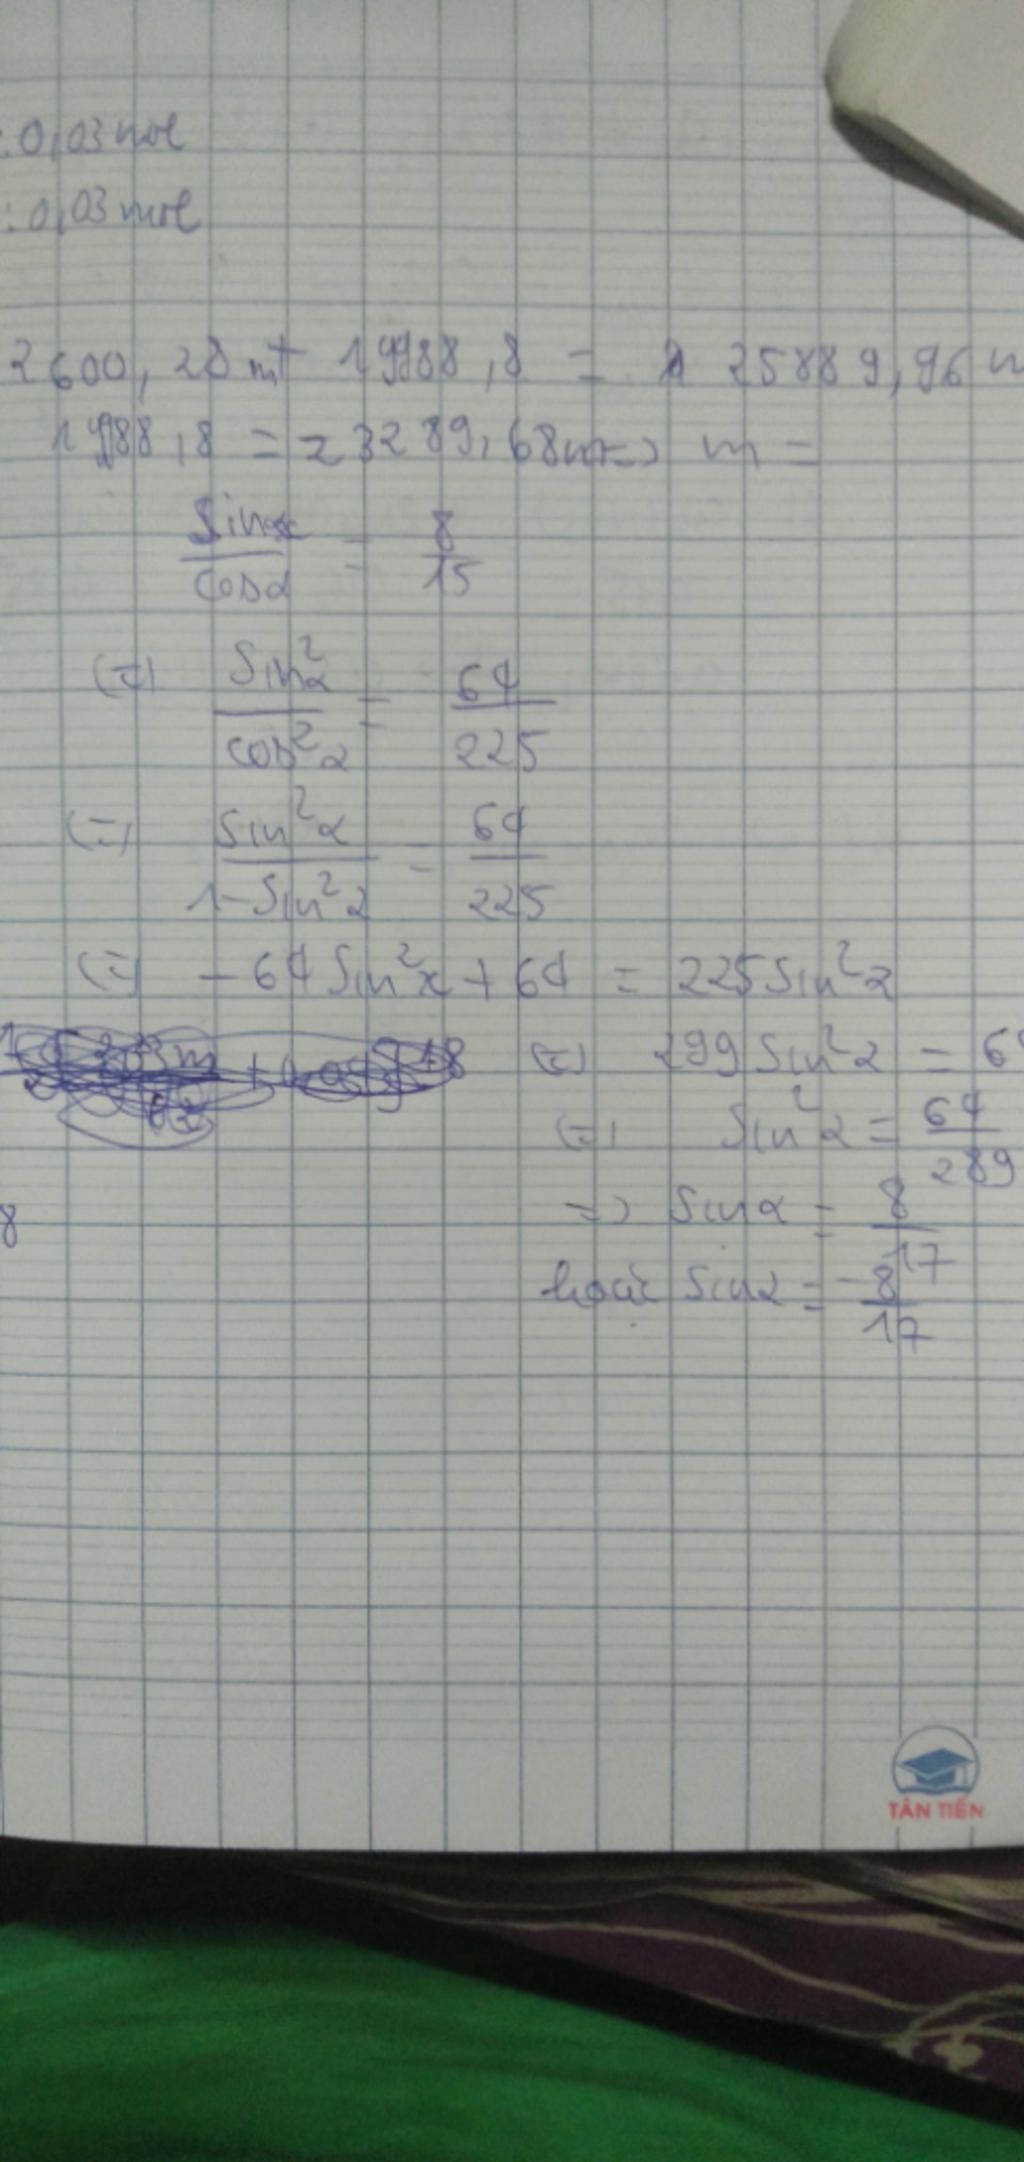 : 0,03 mol
: 0,03 mol
2600,28 m + 19988,8 = 25889,96 m
19988,8 = 23289,68m => m =
sinα/cosα = 8/15
(=) sin²α/cos²α = 64/225
(=) sin²α/1-sin²α = 64/225
(=) -64 sin²x + 64 = 225 sin²α
(=) 299 sin²α = 6
(=) sin²α = 64/289
=> sinα = 8/17
8
hoặc sinα = -8/17
TÂN TIẾN